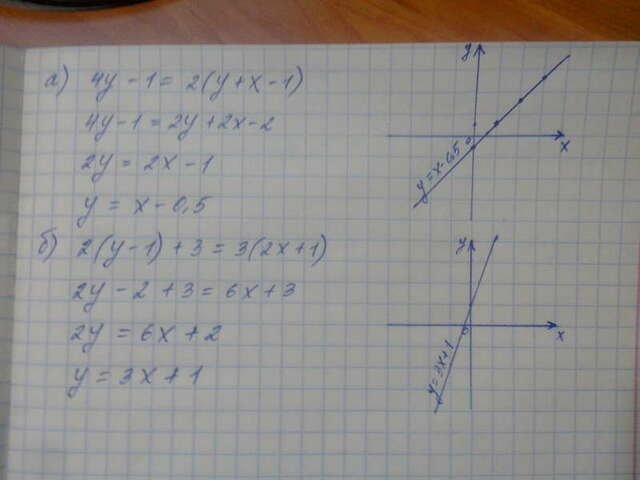 а) 4y - 1 = 2(y + x - 1)
4y - 1 = 2y + 2x - 2
2y = 2x - 1
y = x - 0,5
б) 2(y - 1) + 3 = 3(2x + 1)
2y - 2 + 3 = 6x + 3
2y = 6x + 2
y = 3x + 1
y
0
x
y = x - 0,5
y
0
x
y = 3x + 1